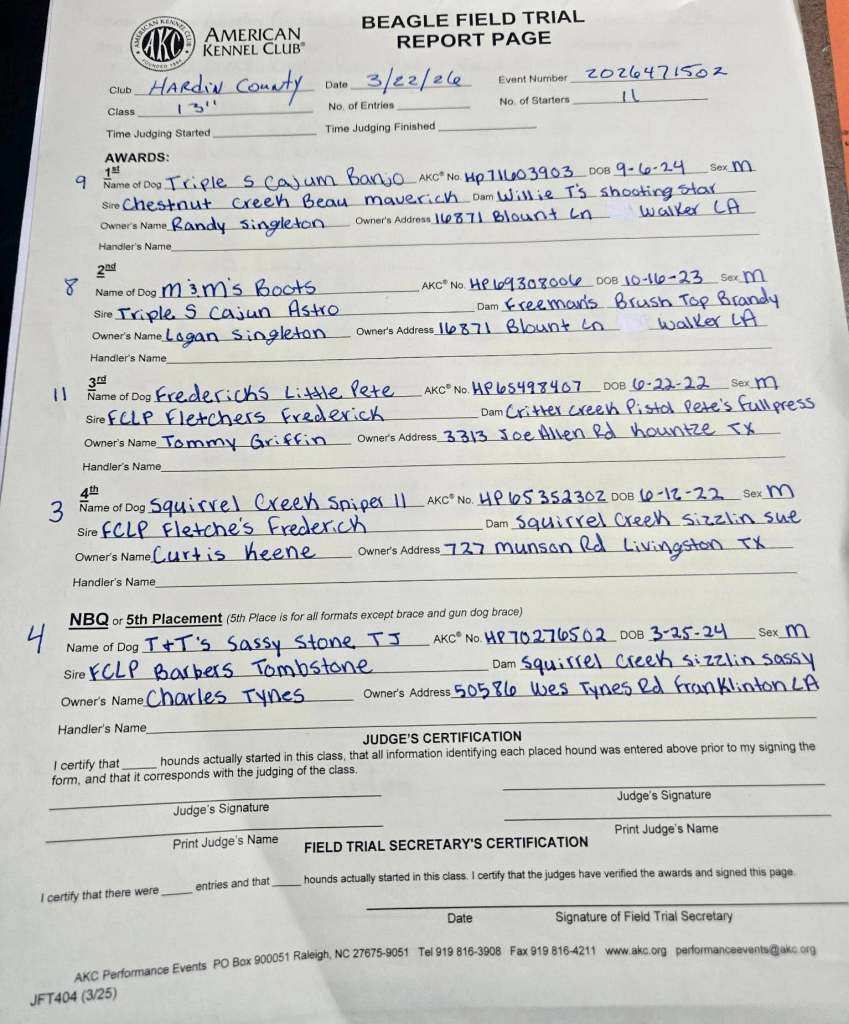 AMERICAN KENNEL CLUB
AKC
FOUNDED 1884
AMERICAN
KENNEL CLUB®
BEAGLE FIELD TRIAL
REPORT PAGE
Club HARDIN County Date 3/22/26 Event Number 2026471502
Class 13" No. of Entries No. of Starters 11
Time Judging Started Time Judging Finished
AWARDS:
1st
9 Name of Dog Triple S Cajum Banjo AKC® No. Hp71603903 DOB 9-6-24 Sex M
Sire Chestnut Creek Beau maverick Dam Willie T's shooting Star
Owner's Name Randy Singleton Owner's Address 16871 Blount Ln Walker LA
Handler's Name
2nd
8 Name of Dog M&M's Boots AKC® No. HP69308006 DOB 10-16-23 Sex M
Sire Triple S Cajun Astro Dam Freeman's Brush Top Brandy
Owner's Name Logan Singleton Owner's Address 16871 Blount Ln Walker LA
Handler's Name
3rd
11 Name of Dog Fredericks Little Pete AKC® No. HP65498407 DOB 6-22-22 Sex M
Sire FCLP Fletchers Frederick Dam Critter Creek Pistol Pete's Fullpress
Owner's Name Tommy Griffin Owner's Address 3313 Joe Allen Rd Kountze TX
Handler's Name
4th
3 Name of Dog Squirrel Creek Sniper II AKC® No. HP65352302 DOB 6-12-22 Sex M
Sire FCLP Fletche's Frederick Dam Squirrel Creek Sizzlin Sue
Owner's Name Curtis Keene Owner's Address 727 Munson Rd Livingston TX
Handler's Name
NBQ or 5th Placement (5th Place is for all formats except brace and gun dog brace)
4 Name of Dog T+T's Sassy Stone TJ AKC® No. HP70276502 DOB 3-25-24 Sex M
Sire FCLP Barbers Tombstone Dam Squirrel Creek Sizzlin Sassy
Owner's Name Charles Tynes Owner's Address 50586 Wes Tynes Rd Franklinton LA
Handler's Name
JUDGE'S CERTIFICATION
I certify that hounds actually started in this class, that all information identifying each placed hound was entered above prior to my signing the
form, and that it corresponds with the judging of the class.
Judge's Signature Judge's Signature
Print Judge's Name Print Judge's Name
FIELD TRIAL SECRETARY'S CERTIFICATION
I certify that there were entries and that hounds actually started in this class. I certify that the judges have verified the awards and signed this page.
Date Signature of Field Trial Secretary
AKC Performance Events PO Box 900051 Raleigh, NC 27675-9051 Tel 919 816-3908 Fax 919 816-4211 www.akc.org performanceevents@akc.org
JFT404 (3/25)